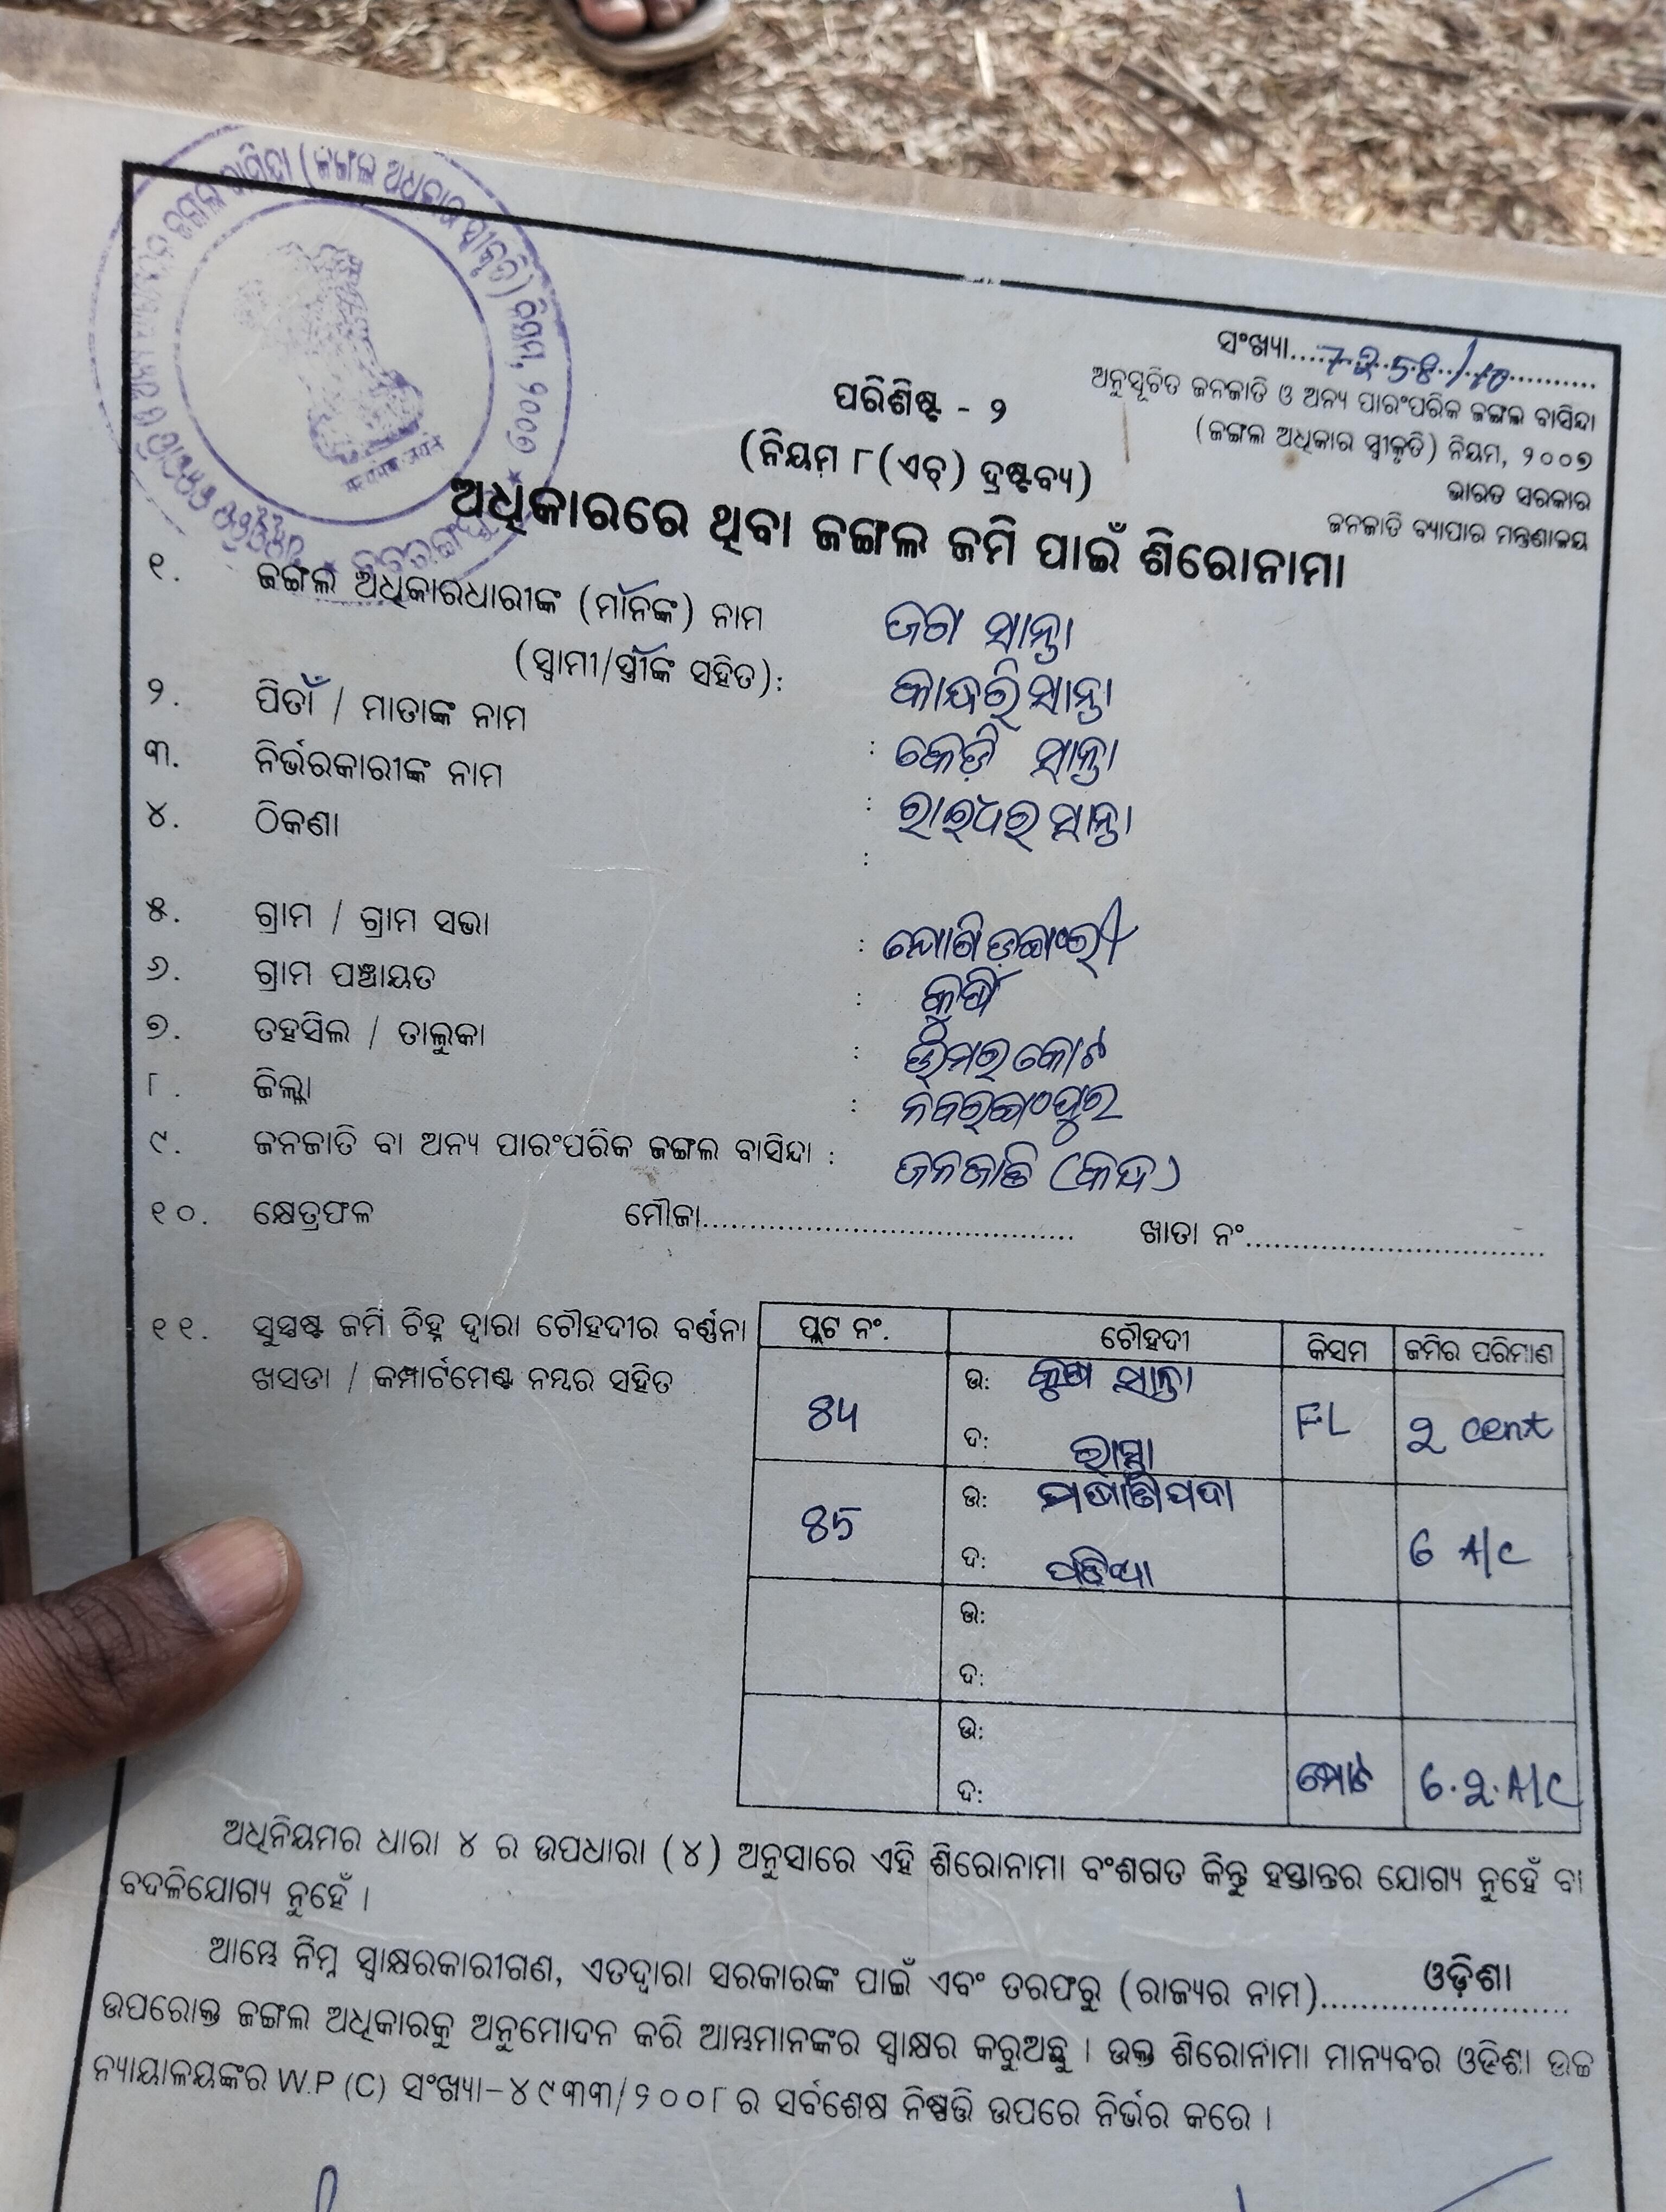 (ଜଙ୍ଗଲ ଅଧିକାର ସ୍ୱୀକୃତି) ନିୟମ, ୨୦୦୭
ସଂଖ୍ୟା....
ଅନୁସୂଚିତ ଜନଜାତି ଓ ଅନ୍ୟ ପାରଂପରିକ ଜଙ୍ଗଲ ବାସିନ୍ଦା
(ଜଙ୍ଗଲ ଅଧିକାର ସ୍ୱୀକୃତି) ନିୟମ, ୨୦୦୭
ଭାରତ ସରକାର
ଜନଜାତି ବ୍ୟାପାର ମନ୍ତ୍ରଣାଳୟ
ପରିଶିଷ୍ଟ - ୨
(ନିୟମ ୮(ଏଚ୍) ଦ୍ରଷ୍ଟବ୍ୟ)
ଅଧିକାରରେ ଥିବା ଜଙ୍ଗଲ ଜମି ପାଇଁ ଶିରୋନାମା
୧. ଜଙ୍ଗଲ ଅଧିକାରଧାରୀଙ୍କ (ମାନଙ୍କ) ନାମ ଜଗ ସାନ୍ତା
(ସ୍ୱାମୀ/ସ୍ତ୍ରୀଙ୍କ ସହିତ): ସାନ୍ତା
୨. ପିତା / ମାତାଙ୍କ ନାମ : ସାନ୍ତା
୩. ନିର୍ଭରକାରୀଙ୍କ ନାମ : ରାଇଧର ସାନ୍ତା
୪. ଠିକଣା :
୫. ଗ୍ରାମ / ଗ୍ରାମ ସଭା :
୬. ଗ୍ରାମ ପଞ୍ଚାୟତ :
୭. ତହସିଲ / ତାଲୁକା : ଉମରକୋଟ
୮. ଜିଲ୍ଲା : ନବରଙ୍ଗପୁର
୯. ଜନଜାତି ବା ଅନ୍ୟ ପାରଂପରିକ ଜଙ୍ଗଲ ବାସିନ୍ଦା : ଜନଜାତି (କନ୍ଧ)
୧୦. କ୍ଷେତ୍ରଫଳ ମୌଜା.... ଖାତା ନଂ....
୧୧. ସୁସ୍ପଷ୍ଟ ଜମି ଚିହ୍ନ ଦ୍ୱାରା ଚୌହଦୀର ବର୍ଣ୍ଣନା
ଖସଡା / କମ୍ପାର୍ଟମେଣ୍ଟ ନମ୍ବର ସହିତ
ପ୍ଲଟ ନଂ. ଚୌହଦୀ କିସମ ଜମିର ପରିମାଣ
ଉ: ସାନ୍ତା
FL ୨ cent
ଦ: ରାସ୍ତା
ଉ:
6 A/C
ଦ: ପଡ଼ିଆ
ଉ:
ଦ:
ଉ:
ଦ: ମୋଟ 6.୨.A/C
ଅଧିନିୟମର ଧାରା ୪ ର ଉପଧାରା (୪) ଅନୁସାରେ ଏହି ଶିରୋନାମା ବଂଶଗତ କିନ୍ତୁ ହସ୍ତାନ୍ତର ଯୋଗ୍ୟ ନୁହେଁ ବା
ବଦଳିଯୋଗ୍ୟ ନୁହେଁ ।
ଆମ୍ଭେ ନିମ୍ନ ସ୍ୱାକ୍ଷରକାରୀଗଣ, ଏତଦ୍ୱାରା ସରକାରଙ୍କ ପାଇଁ ଏବଂ ତରଫରୁ (ରାଜ୍ୟର ନାମ)....ଓଡ଼ିଶା....
ଉପରୋକ୍ତ ଜଙ୍ଗଲ ଅଧିକାରକୁ ଅନୁମୋଦନ କରି ଆମ୍ଭମାନଙ୍କର ସ୍ୱାକ୍ଷର କରୁଅଛୁ । ଉକ୍ତ ଶିରୋର୍ନାମା ମାନ୍ୟବର ଓଡିଶା ଉଚ୍ଚ
ନ୍ୟାୟାଳୟଙ୍କର W.P (C) ସଂଖ୍ୟା-୪୯୩୩/୨୦୦୮ ର ସର୍ବଶେଷ ନିଷ୍ପତ୍ତି ଉପରେ ନିର୍ଭର କରେ ।